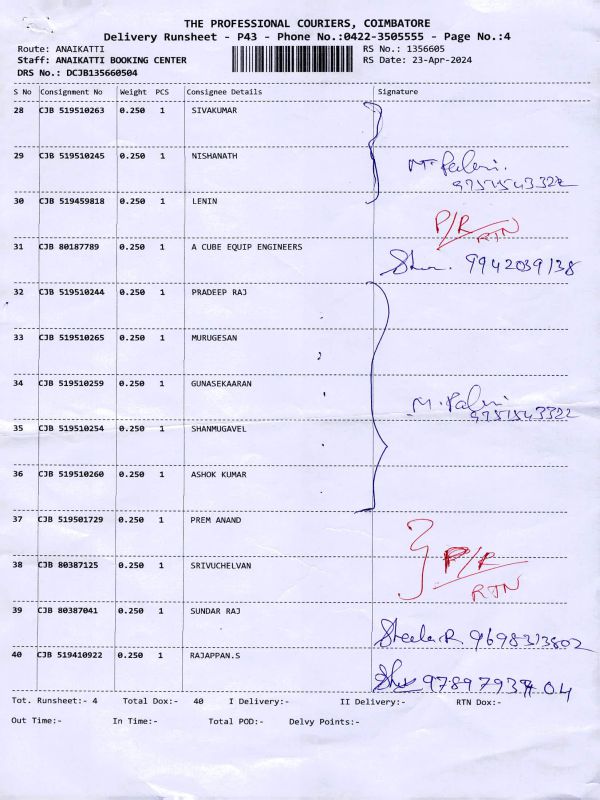 THE PROFESSIONAL COURIERS, COIMBATORE
Delivery Runsheet - P43 - Phone No.:0422-3505555 - Page No.:4
Route: ANAIKATTI RS No.: 1356605
Staff: ANAIKATTI BOOKING CENTER RS Date: 23-Apr-2024
DRS No.: DCJB135660504
S No Consignment No Weight PCS Consignee Details Signature
28 CJB 519510263 0.250 1 SIVAKUMAR
29 CJB 519510245 0.250 1 NISHANATH
9751543322
30 CJB 519459818 0.250 1 LENIN P/R
RTN
31 CJB 80187789 0.250 1 A CUBE EQUIP ENGINEERS
9942039138
32 CJB 519510244 0.250 1 PRADEEP RAJ
33 CJB 519510265 0.250 1 MURUGESAN
34 CJB 519510259 0.250 1 GUNASEKAARAN
9751543322
35 CJB 519510254 0.250 1 SHANMUGAVEL
36 CJB 519510260 0.250 1 ASHOK KUMAR
37 CJB 519501729 0.250 1 PREM ANAND
38 CJB 80387125 0.250 1 SRIVUCHELVAN P/R
RTN
39 CJB 80387041 0.250 1 SUNDAR RAJ
Sheela R 9698313802
40 CJB 519410922 0.250 1 RAJAPPAN.S
Tot. Runsheet:- 4 Total Dox:- 40 I Delivery:- II Delivery:- RTN Dox:-
Out Time:- In Time:- Total POD:- Delvy Points:-